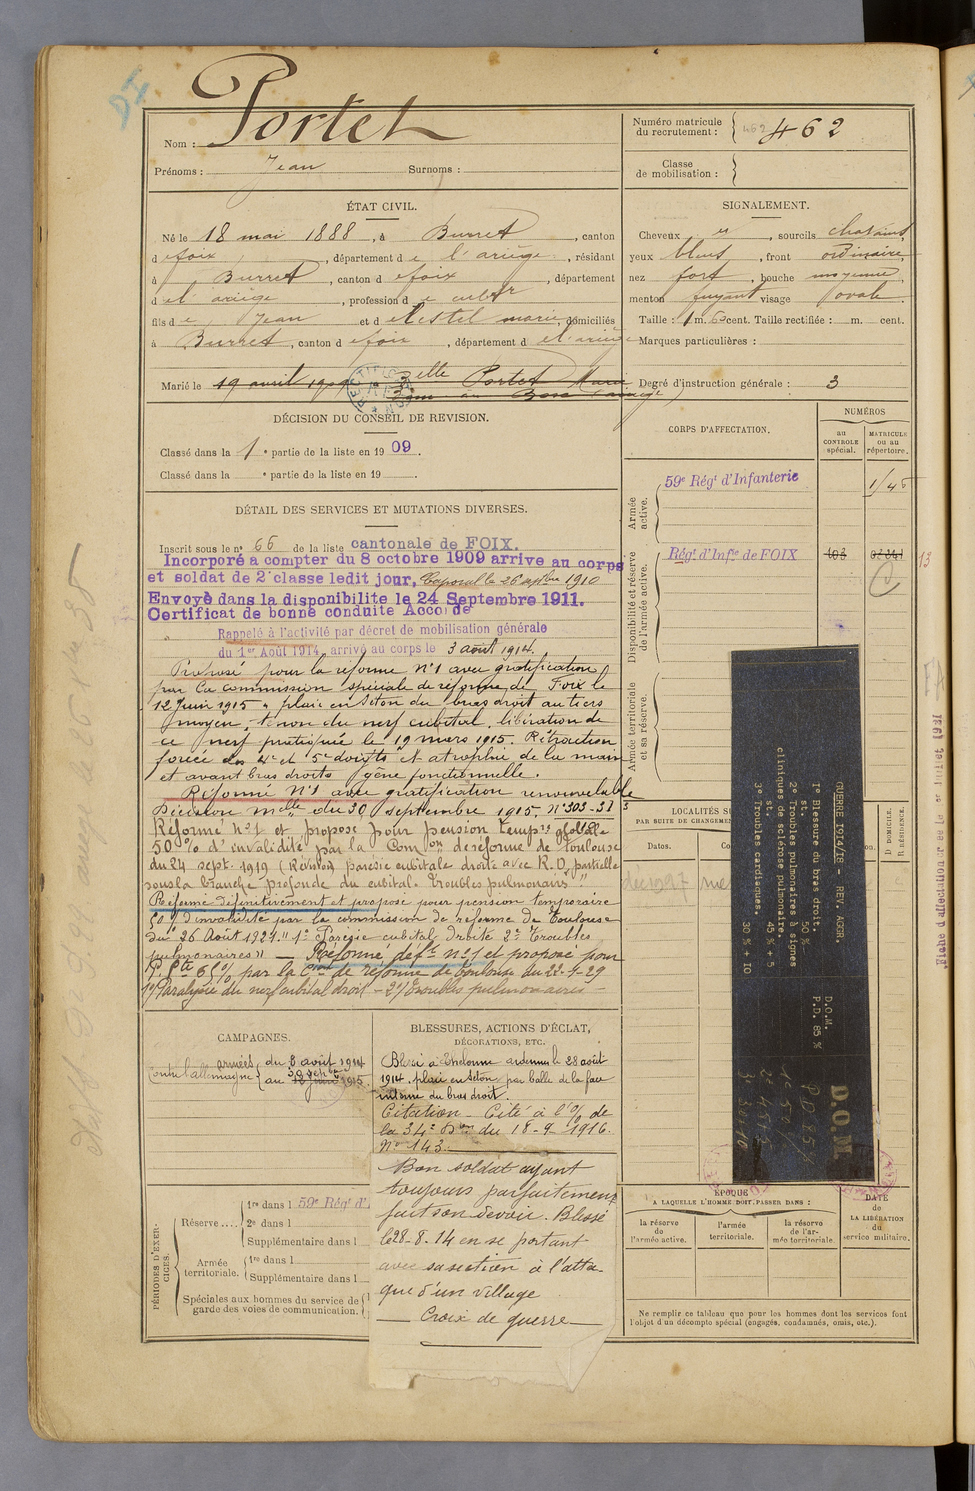 Nom : Portet
Prénoms : Jean Surnoms :
Numéro matricule du recrutement : 462
Classe de mobilisation :
ÉTAT CIVIL.
Né le 18 mai 1888, à Burret, canton
de foix, département de l'ariège, résidant
à Burret, canton de foix, département
de l'ariège, profession de cultr
fils de Jean et de Estel marie, domiciliés
à Burret, canton de foix, département de l'ariège
Marié le 19 avril 1909 Portet
DÉCISION DU CONSEIL DE REVISION.
Classé dans la 1e partie de la liste en 1909.
Classé dans la e partie de la liste en 19 .
DÉTAIL DES SERVICES ET MUTATIONS DIVERSES.
Inscrit sous le no 66 de la liste cantonale de FOIX.
Incorporé à compter du 8 octobre 1909 arrive au corps
et soldat de 2e classe ledit jour, Caporal le 26 1910
Envoyé dans la disponibilite le 24 Septembre 1911.
Certificat de bonne conduite Accordé
Rappelé à l'activité par décret de mobilisation générale
du 1er Août 1914, arrivé au corps le 3 août 1914.
Proposé pour la réforme No 1 avec gratification
par la commission spéciale de réforme de Foix le
12 Juin 1915 " plaie en séton du bras droit au tiers
moyen, du nerf cubital, libération de
ce nerf pratiquée le 19 mars 1915. Rétraction
forcée des 4e et 5e doigts et atrophie de la main
et avant bras droits gêne fonctionnelle.
Réformé No 1 avec gratification renouvelable
Décision melle du 30 septembre 1915. No 303-31
Réformé No 1 et proposé pour pension tempre globale
50 % d'invalidité par la Comon de réforme de Toulouse
du 24 sept. 1919 (Révision) parésie cubitale droite avec R.D. partielle
sous la branche profonde du cubital. Troubles pulmonaires."
Réformé définitivement et proposé pour pension temporaire
50 % d'invalidité par la commission de réforme de Toulouse
du 26 Août 1924. " 1o Parésie cubital droite 2o Troubles
pulmonaires " — Réformé déft no 1 et proposé pour
65 % par la Con de réforme de Toulouse du 22-4-29
1o/ Paralysie du nerf cubital droit - 2o/ Troubles pulmonaires -
CAMPAGNES.
Contre l'allemagne du 3 août 1914
au 30 septbre 1915.
BLESSURES, ACTIONS D'ÉCLAT,
DÉCORATIONS, ETC.
Blessé à ardennes le 28 août
1914. plaie en séton par balle de la face
interne du bras droit.
Citation - Cité à l'o/ de
la 34e Don du 18-9-1916.
No 143.
Bon soldat ayant
toujours parfaitement
fait son devoir. Blessé
le 28-8-14 en se portant
avec sa section à l'atta-
que d'un village
— Croix de guerre —
PÉRIODES D'EXERCICES.
Réserve.... 1re dans l 59e Régt d'
2e dans l
Supplémentaire dans l
Armée territoriale. 1re dans l
Supplémentaire dans l
Spéciales aux hommes du service de
garde des voies de communication.
SIGNALEMENT.
Cheveux , sourcils chatains,
yeux bleus, front ordinaire,
nez fort, bouche moyenne,
menton fuyant visage ovale.
Taille : 1 m. 60 cent. Taille rectifiée : m. cent.
Marques particulières :
Degré d'instruction générale : 3
CORPS D'AFFECTATION.
NUMÉROS
au CONTROLE spécial.
MATRICULE ou au répertoire.
Armée active.
59e Régt d'Infanterie
Disponibilité et réserve de l'armée active.
Régt d'Infie de FOIX 103
13
Armée territoriale et sa réserve.
LOCALITÉS SU
PAR SUITE DE CHANGEME
Dates. Co
D DOMICILE.
R RÉSIDENCE.
GUERRE 1914/18 - REV. AGGR.
1o Blessure du bras droit.
st. 50 %
2o Troubles pulmonaires à signes
cliniques de sclérose pulmonaire.
st. 45 % + 5
3o Troubles cardiaques.
30 % + 10
D.O.M.
P.D. 85 %
D.O.M
ÉPOQUE
A LAQUELLE L'HOMME DOIT PASSER DANS :
la réserve de l'armée active.
l'armée territoriale.
la réserve de l'armée territoriale.
DATE de LA LIBÉRATION du service militaire.
Ne remplir ce tableau que pour les hommes dont les services font
l'objet d'un décompte spécial (engagés, condamnés, omis, etc.).